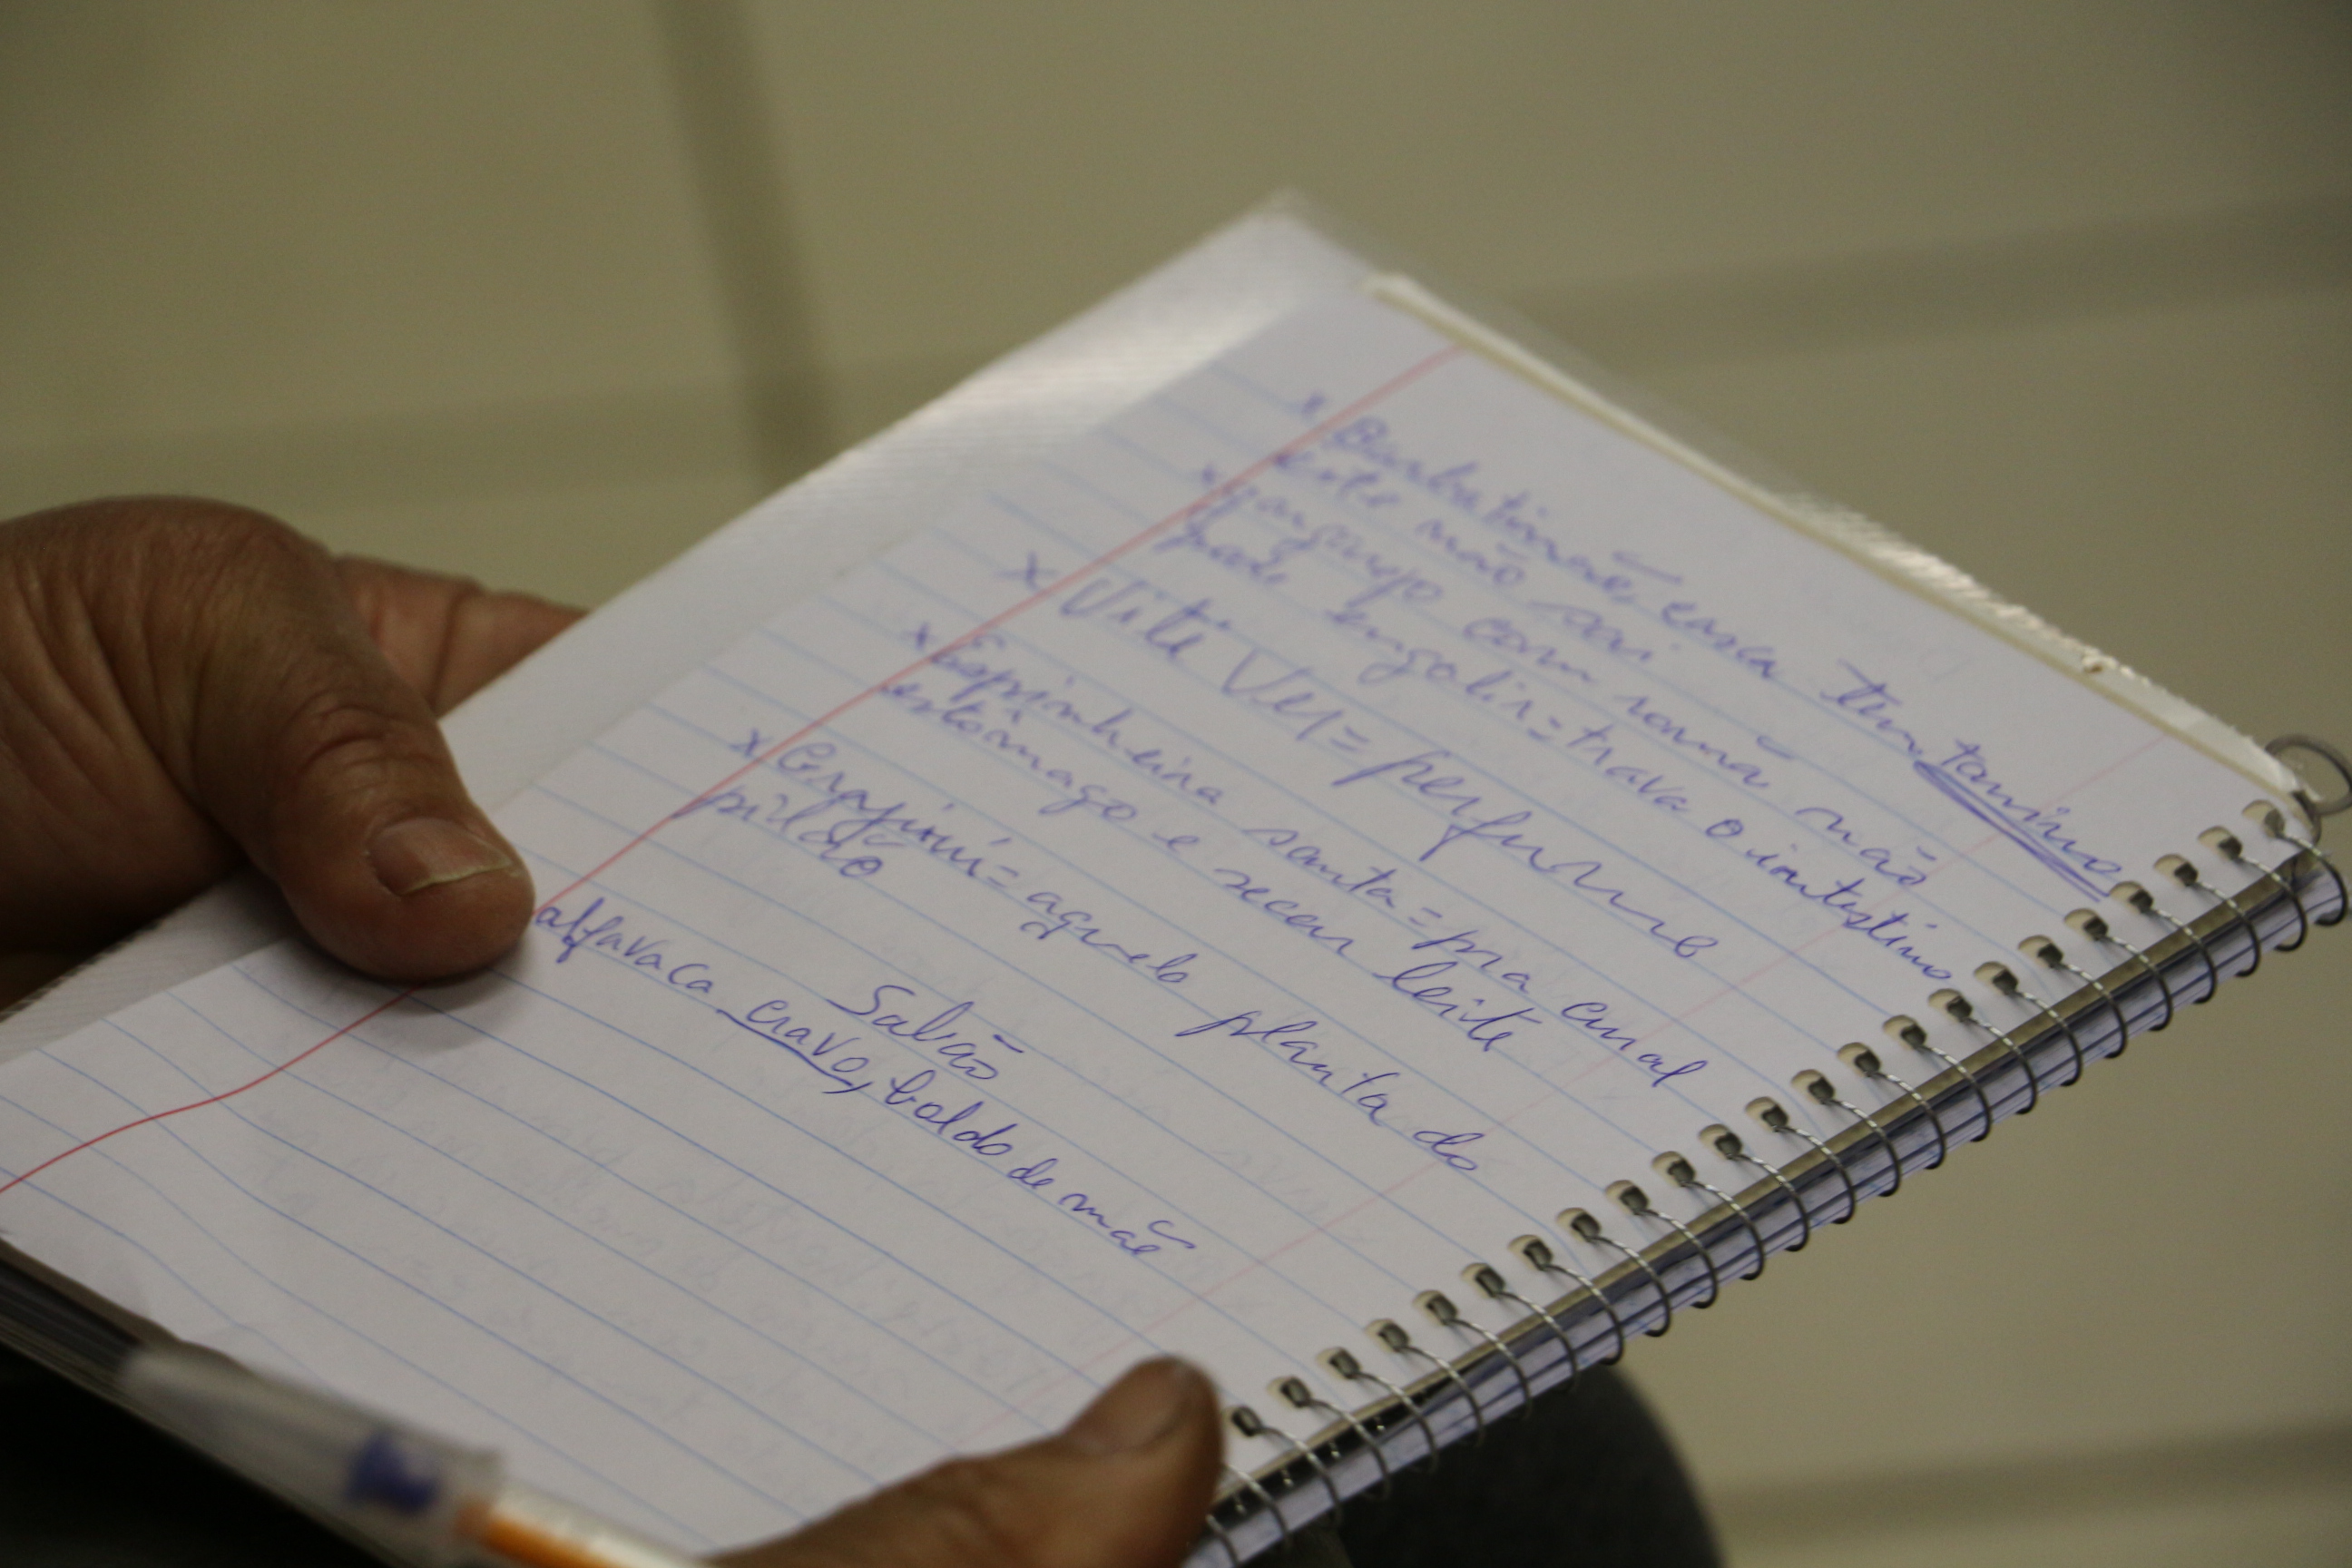 x Barbatimão, casca tem tanino
este não sai
x gargarejo com romã não
pode engolir = trava o intestino
x Viti Ver = perfume
x Espinheira santa = pra enal
estômago e secar leite
x = aquela planta do
pirão
Sabão
alfavaca cravo, boldo de mãe